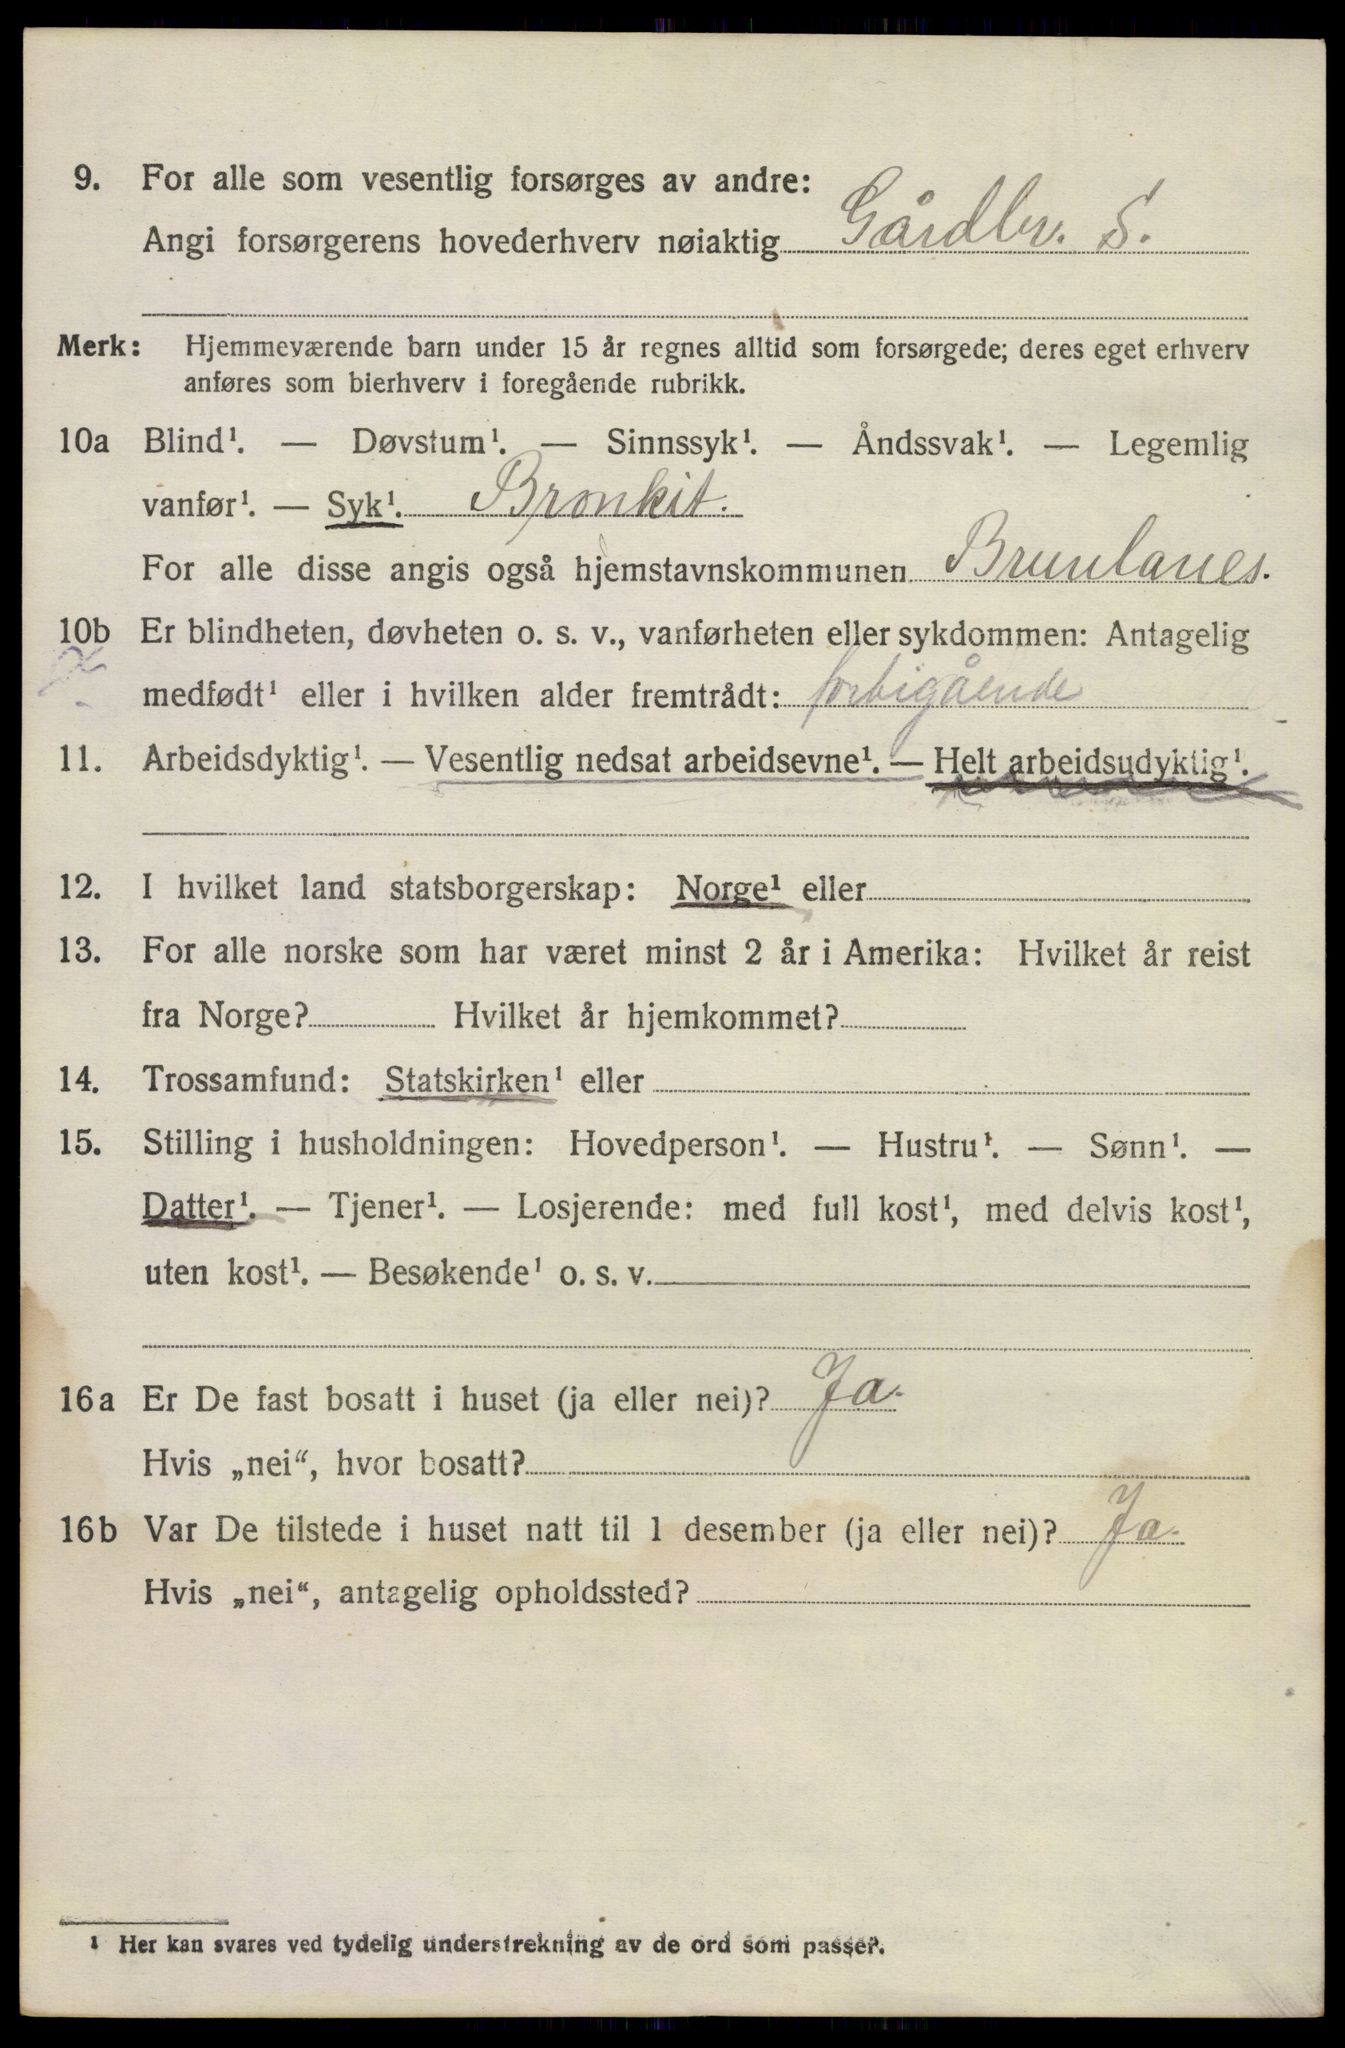 9. For alle som vesentlig forsørges av andre:
Angi forsørgerens hovederhverv nøiaktig Gårdbr. S.
Merk: Hjemmeværende barn under 15 år regnes alltid som forsørgede; deres eget erhverv
anføres som bierhverv i foregående rubrikk.
10a Blind¹. — Døvstum¹. — Sinnssyk¹. — Åndssvak¹. — Legemlig
vanfør¹. — Syk¹. Bronkit.
For alle disse angis også hjemstavnskommunen Brunlanes.
10b Er blindheten, døvheten o. s. v., vanførheten eller sykdommen: Antagelig
medfødt¹ eller i hvilken alder fremtrådt: forbigående
11. Arbeidsdyktig¹. — Vesentlig nedsat arbeidsevne¹. — Helt arbeidsudyktig¹.
12. I hvilket land statsborgerskap: Norge¹ eller
13. For alle norske som har været minst 2 år i Amerika: Hvilket år reist
fra Norge? Hvilket år hjemkommet?
14. Trossamfund: Statskirken¹ eller
15. Stilling i husholdningen: Hovedperson¹. — Hustru¹. — Sønn¹. —
Datter¹. — Tjener¹. — Losjerende: med full kost¹, med delvis kost¹,
uten kost¹. — Besøkende¹ o. s. v.
16a Er De fast bosatt i huset (ja eller nei)? Ja.
Hvis „nei“, hvor bosatt?
16b Var De tilstede i huset natt til 1 desember (ja eller nei)? Ja.
Hvis „nei“, antagelig opholdssted?
¹ Her kan svares ved tydelig understrekning av de ord som passer.